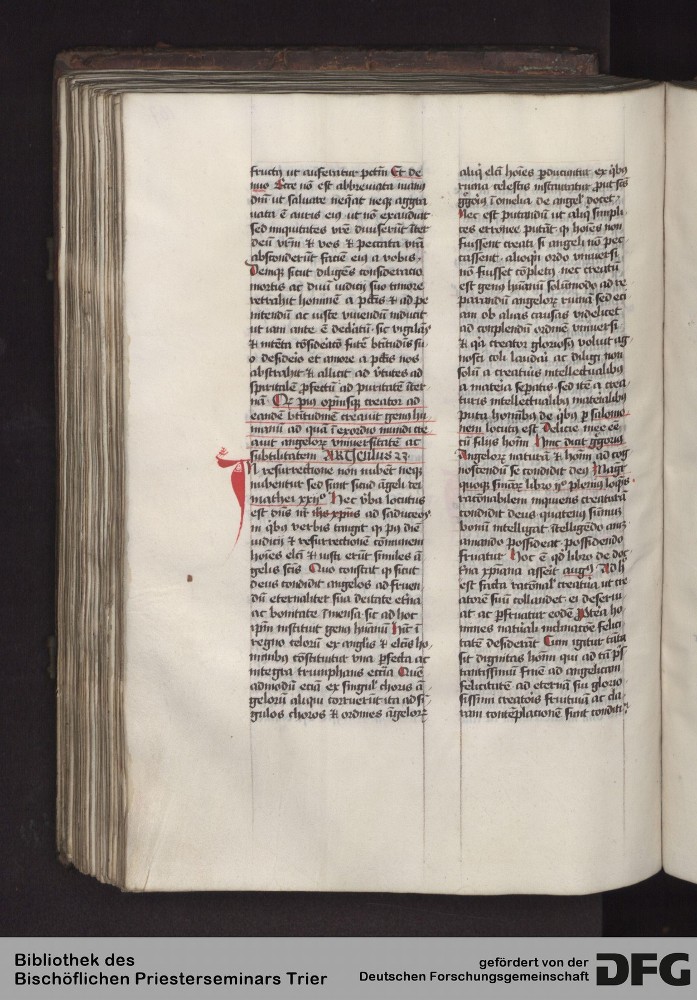 fructū ut auferatur pctm̄ Et de
nuo Ecce nō est abbreviata manꝰ
dnī ut salvare neq̄at neqꝫ aggra
vata ē auris eiꝰ ut nō exaudiat
sed iniquitates vrē diviserūt īter
deū vrm̄ ⁊ vos ⁊ peccata vrā
absconderūt faciē eiꝰ a vobis
Demqꝫ sicut diligēs consideracio
mortis ac divī iudicij suo timore
retrahit hominē a pctis ⁊ ad pe
nitendū ac iuste vivendū inducit
ut iam ante ē deductū sic vigilās
⁊ intēta cōsideracō futē btitudīs su
o desideio et amore a pctis nos
abstrahit ⁊ allicit ad v̄tutes ad
spiritalē ꝓfectū ad puritatē īter
nā Qꝛ piꝰ opīusqꝫ creator ad
eandē btitudinē creavit genꝰ hu
manū ad quā ī exordio mundi cre
avit angeloꝝ universitatē ac
subtilitatem ARTiculus 23
In resurrectione non nubēt neqꝫ
nubentur sed sunt sicud āgeli dei
mathei xxijᵒ Hec v̄ba locutus
est dn̄s nr̄ ihs xpūs ad saduceos
in qͥbꝰ verbis tangit qꝫ pꝰ diē
iudicij ⁊ resurrectionē cōmunem
hoīes elcī ⁊ iusti erūt similes ā
gelis scīs Quo constat qꝫ sicut
deus condidit angelos ad fruen
dū eternaliter sua deitate etīa
ac bonitate īmensa sic ad hoc
ipm̄ instituit genꝰ hūanū Hīc ī
regno celoꝝ ex anglis ⁊ elcīs ho
minibꝰ cōstitutiur una ꝑfecta ac
integra triumphans eccīa Quē
admodū etiā ex singulꝭ choris ā
geloꝝ aliqui corruerūt ita ad sī
gulos choros ⁊ ordines āgeloꝝ
aliqͥ elcī hoīes ꝓducuntur ex qͥbꝰ
ruina celestis instauratur put scūs
ggoriꝰ ī omelia de angel docet
Nec est putandū ut aliqͥ simpli
ces erronee putāt qꝫ hoīes non
fuissent creati si angeli nō pec
cassent alioqͥn ordo universi
nō fuisset cōpletꝰ nec creatū
est genꝰ hūanū solūmodo ad re
parandū angeloꝝ ruinā sed eci
am ob alias causas videlicet
ad complendū ordinē universi
⁊ qꝛ creator gloriosꝰ voluit ag
nosci coli laudari ac diligi non
solū a creaturis intellectualibꝰ
a materia seꝑatis sed itē a crea
turis intellectualibꝰ materialibꝰ
puta homībꝰ de qͥbꝰ ꝑ salomo
nem locuta est Delicie mee eē
cū filiis hoīm Hinc dicit ggoriꝰ
Angeloꝝ naturā ⁊ hoīm ad cog
noscendū se condidit deꝰ Magr̄
quoqꝫ sniaꝝ libro ijᵒ pleniꝰ loqͥs
racōnabilem inquiens creaturā
condidit deus quatenꝰ sūmū
bonū intelligāt ītelligēdo amꝫ
amando possideat possidendo
fruatur Hoc ē qd libro de doc
trīa xpiana asserit augꝰ Ad h̄
est facta racōnalꝭ creatura ut cre
atorē suū collaudet ei deservi
at ac ꝑfruatur eodē Preterea ho
mines naturali inclinacōe felici
tatē desiderāt Cum igitur tāta
sit dignitas hoīm qui ad tā pꝭ
tantissimū finē ad angelicam
felicitatē ad eternā sui glorio
sissimi creatoris fruitivā ac cla
ram contēplacionem sunt conditi
Bibliothek des
Bischöflichen Priesterseminars Trier
gefördert von der
Deutschen Forschungsgemeinschaft
DFG